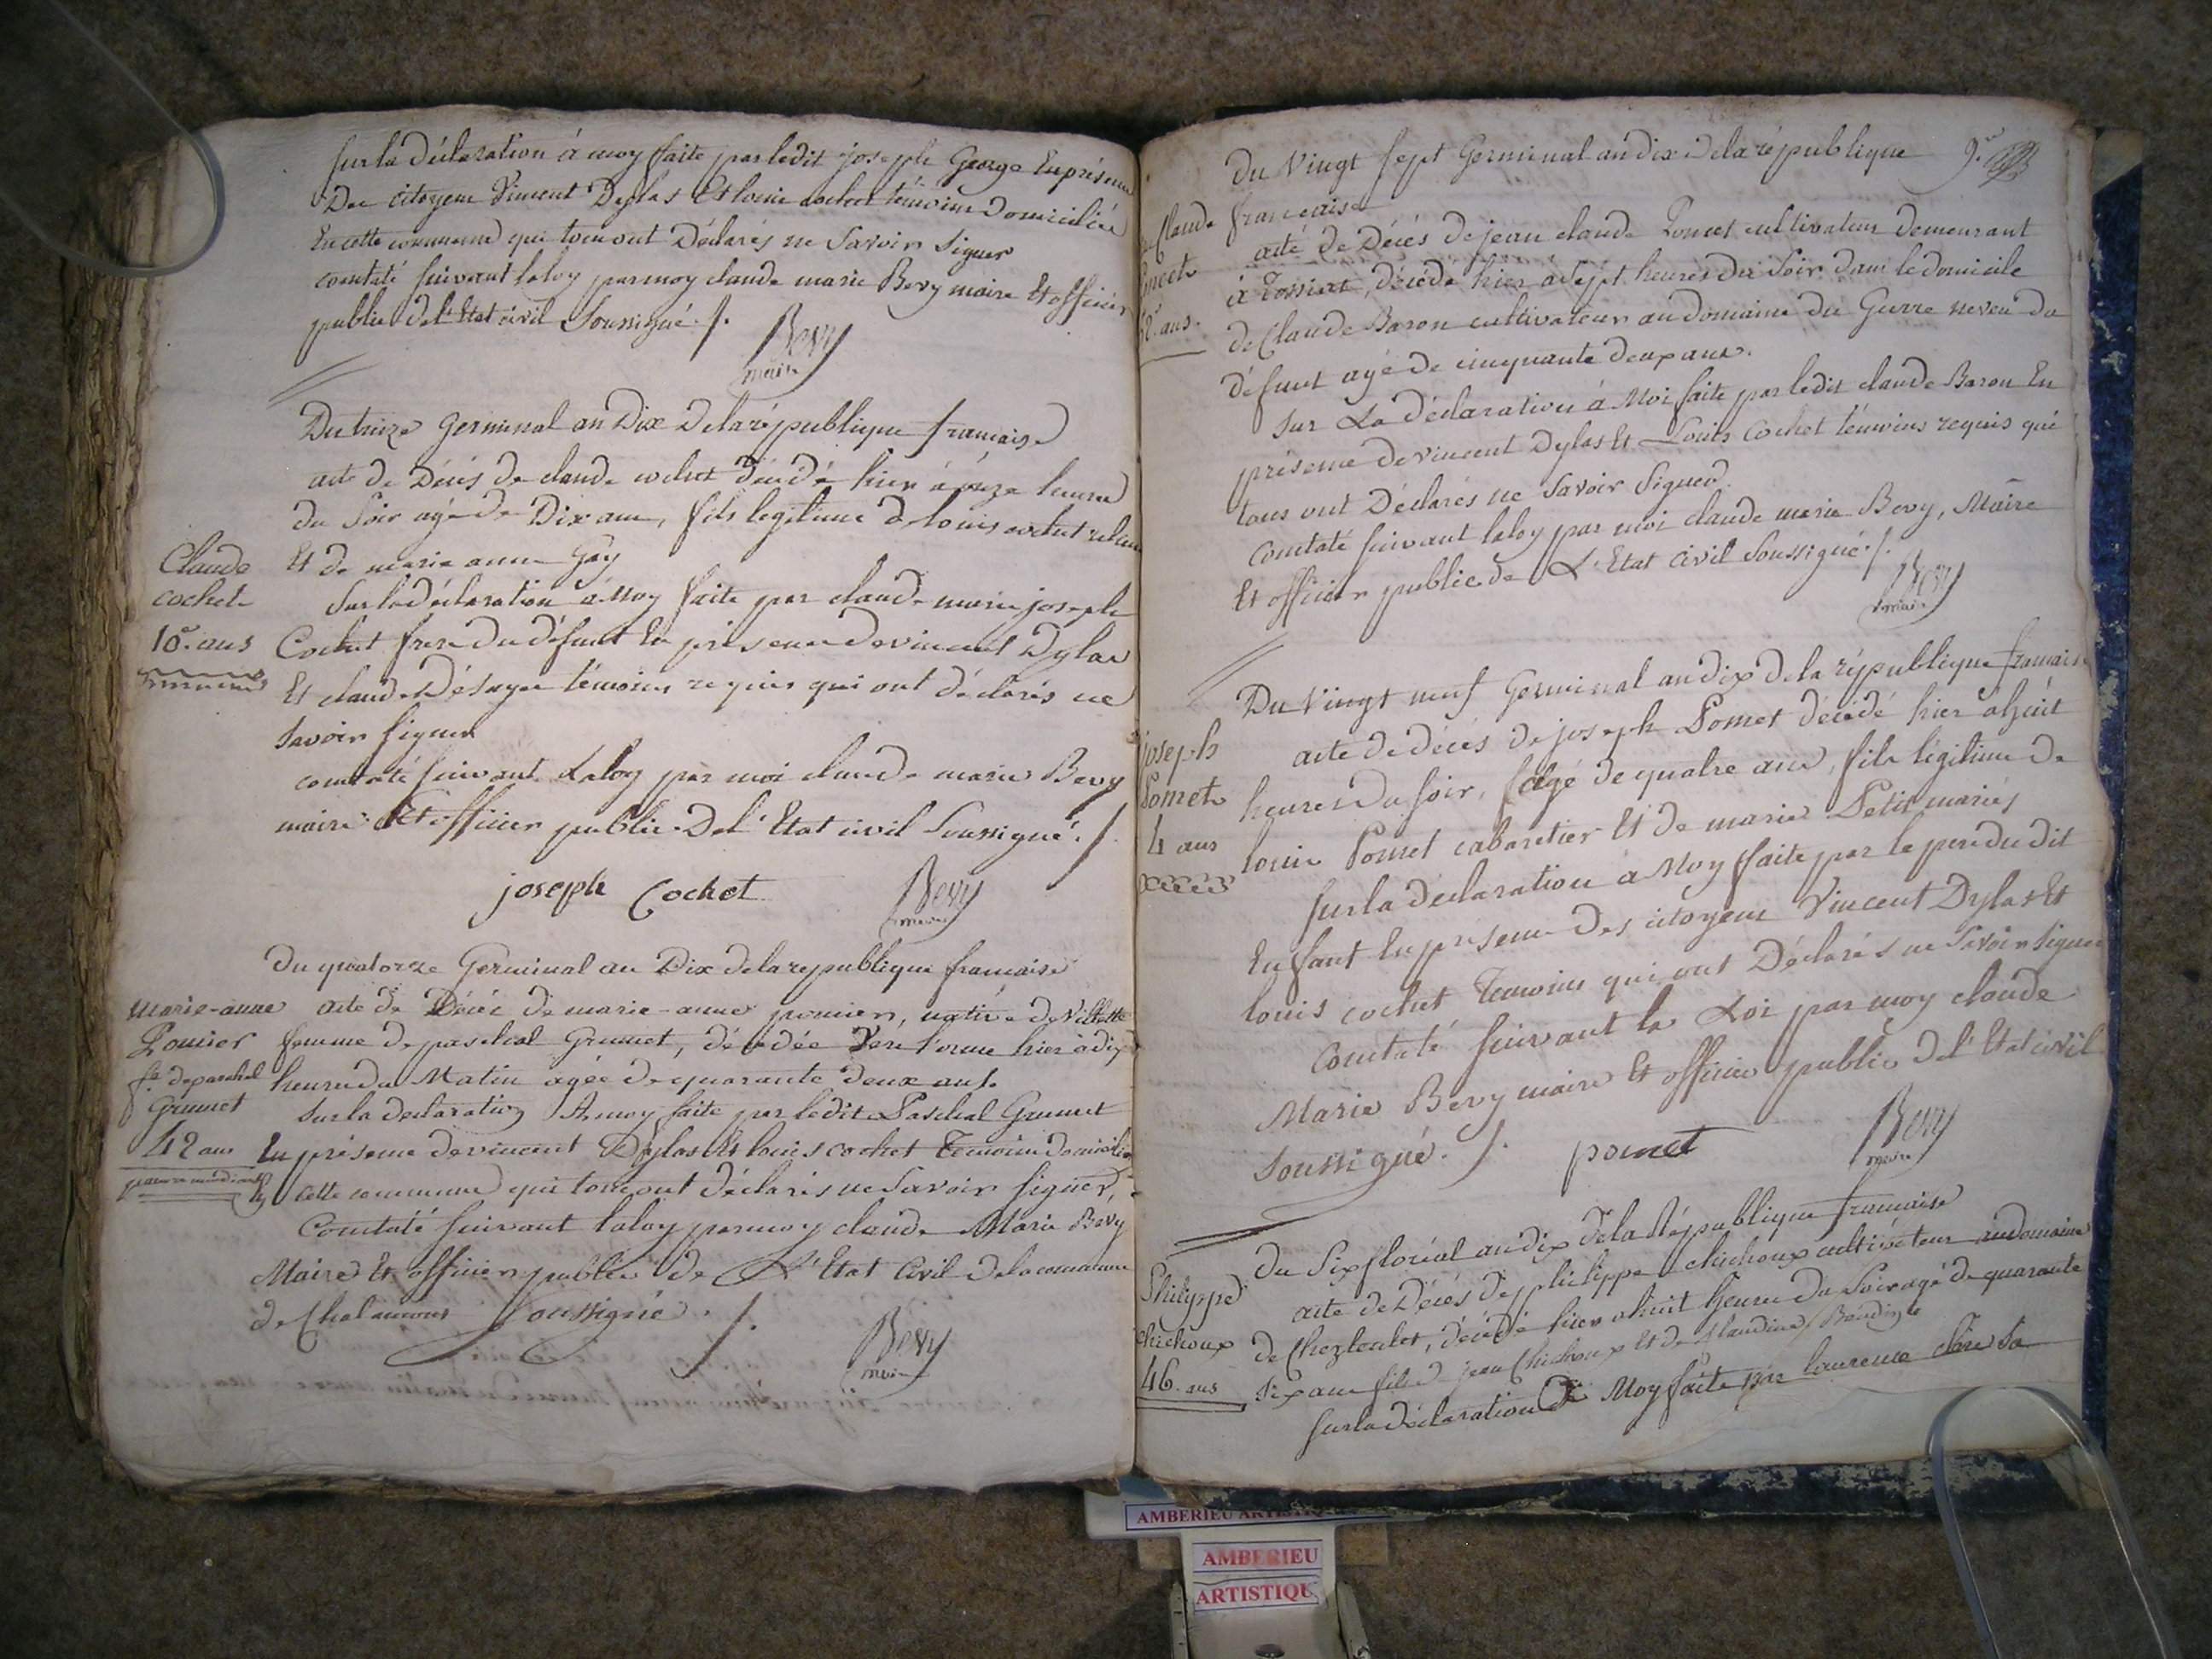 sur la Déclaration à moy faite par ledit joseph George En présence
Des citoyens Vincent Dylas Et louis cochet témoins Domiciliés
En cette commune qui tous ont Déclarés ne Savoir Signer
constaté suivant la loy par moy claude marie Bevy maire Et officier
public de l'Etat civil Soussigné ./.
Bevy
maire
Du treize Germinal an Dix De la république française
acte de Décés de claude cochet décédé hier à onze heures
du Soir agé de Dix ans, fils legitime de louis cochet
Et de marie anne Gay
Claude
cochet
10. ans
Sur la déclaration à moy faite par claude marie joseph
Cochet frere du défunt En présence de vincent Dylas
Et claude témoins requis qui ont déclarés ne
Savoir signer
constaté suivant La loy par moi claude marie Bevy
maire Et officier public De l'Etat civil Soussigné ./.
joseph Cochet
Bevy
maire
Du quatorze Germinal an Dix de la republique francaise
marie-anne
Pomier
fe. de paschal
Grumet
42 ans
acte de Décés de marie-anne pomier, native de Villette
femme de paschal Grumet, décédée hier à dix
heures du Matin agée de quarante deux ans.
Sur la declaration A moy faite par ledit Paschal Grumet
En présence de vincent Dylas Et louis cochet Temoins Domiciliés
En cette commune qui tous ont déclarés ne Savoir signer,
Constaté suivant la loy par moy claude Marie Bevy
Maire Et officier public de L'Etat Civil de la commune
de Chalamont Soussigné ./.
Bevy
maire
Du Vingt sept Germinal an dix De la république 9.e
française
Claude
52. ans.
acte de Décés de jean claude Poncet cultivateur demeurant
à Tossiat, décédé hier à Sept heures du Soir dans le domicile
de Claude Baron cultivateur au domaine du neveu du
défunt agé de cinquante deux ans.
Sur La déclaration à Moi faite par ledit claude Baron En
présence de vincent Dylas Et Louis Cochet témoins requis qui
tous ont Déclarés ne Savoir Signer.
Constaté suivant la loy par moi claude marie Bevy, Maire
Et officier public de L'Etat Civil Soussigné ./.
Bevy
maire
Du Vingt neuf Germinal an dix de la république française
joseph
Pomet
4 ans
acte de décés de joseph Pomet décédé hier à huit
heures du soir, agé de quatre ans, fils legitime de
louis Pomet cabaretier Et de marie Petit mariés
sur la declaration à Moy faite par le pere du dit
Enfant En présence Des citoyens Vincent Dylas Et
louis cochet Temoins qui ont Déclarés ne Savoir signer
Constaté suivant la Loi par moy claude
Marie Bevy maire Et officier public de l'Etat civil
Soussigné. ./. pomet
Bevy
maire
Du Six floréal an dix de la République française
Philippe
chichoux
46. ans
acte de Décés de philippe chichoux cultivateur au domaine
de , décédé hier à huit heures du Soir agé de quarante
Six ans fils de jean Chichoux Et de Claudine
sur la Déclaration à Moy faite par laurence sa
AMBERIEU ARTISTIQUE
AMBERIEU
ARTISTIQU